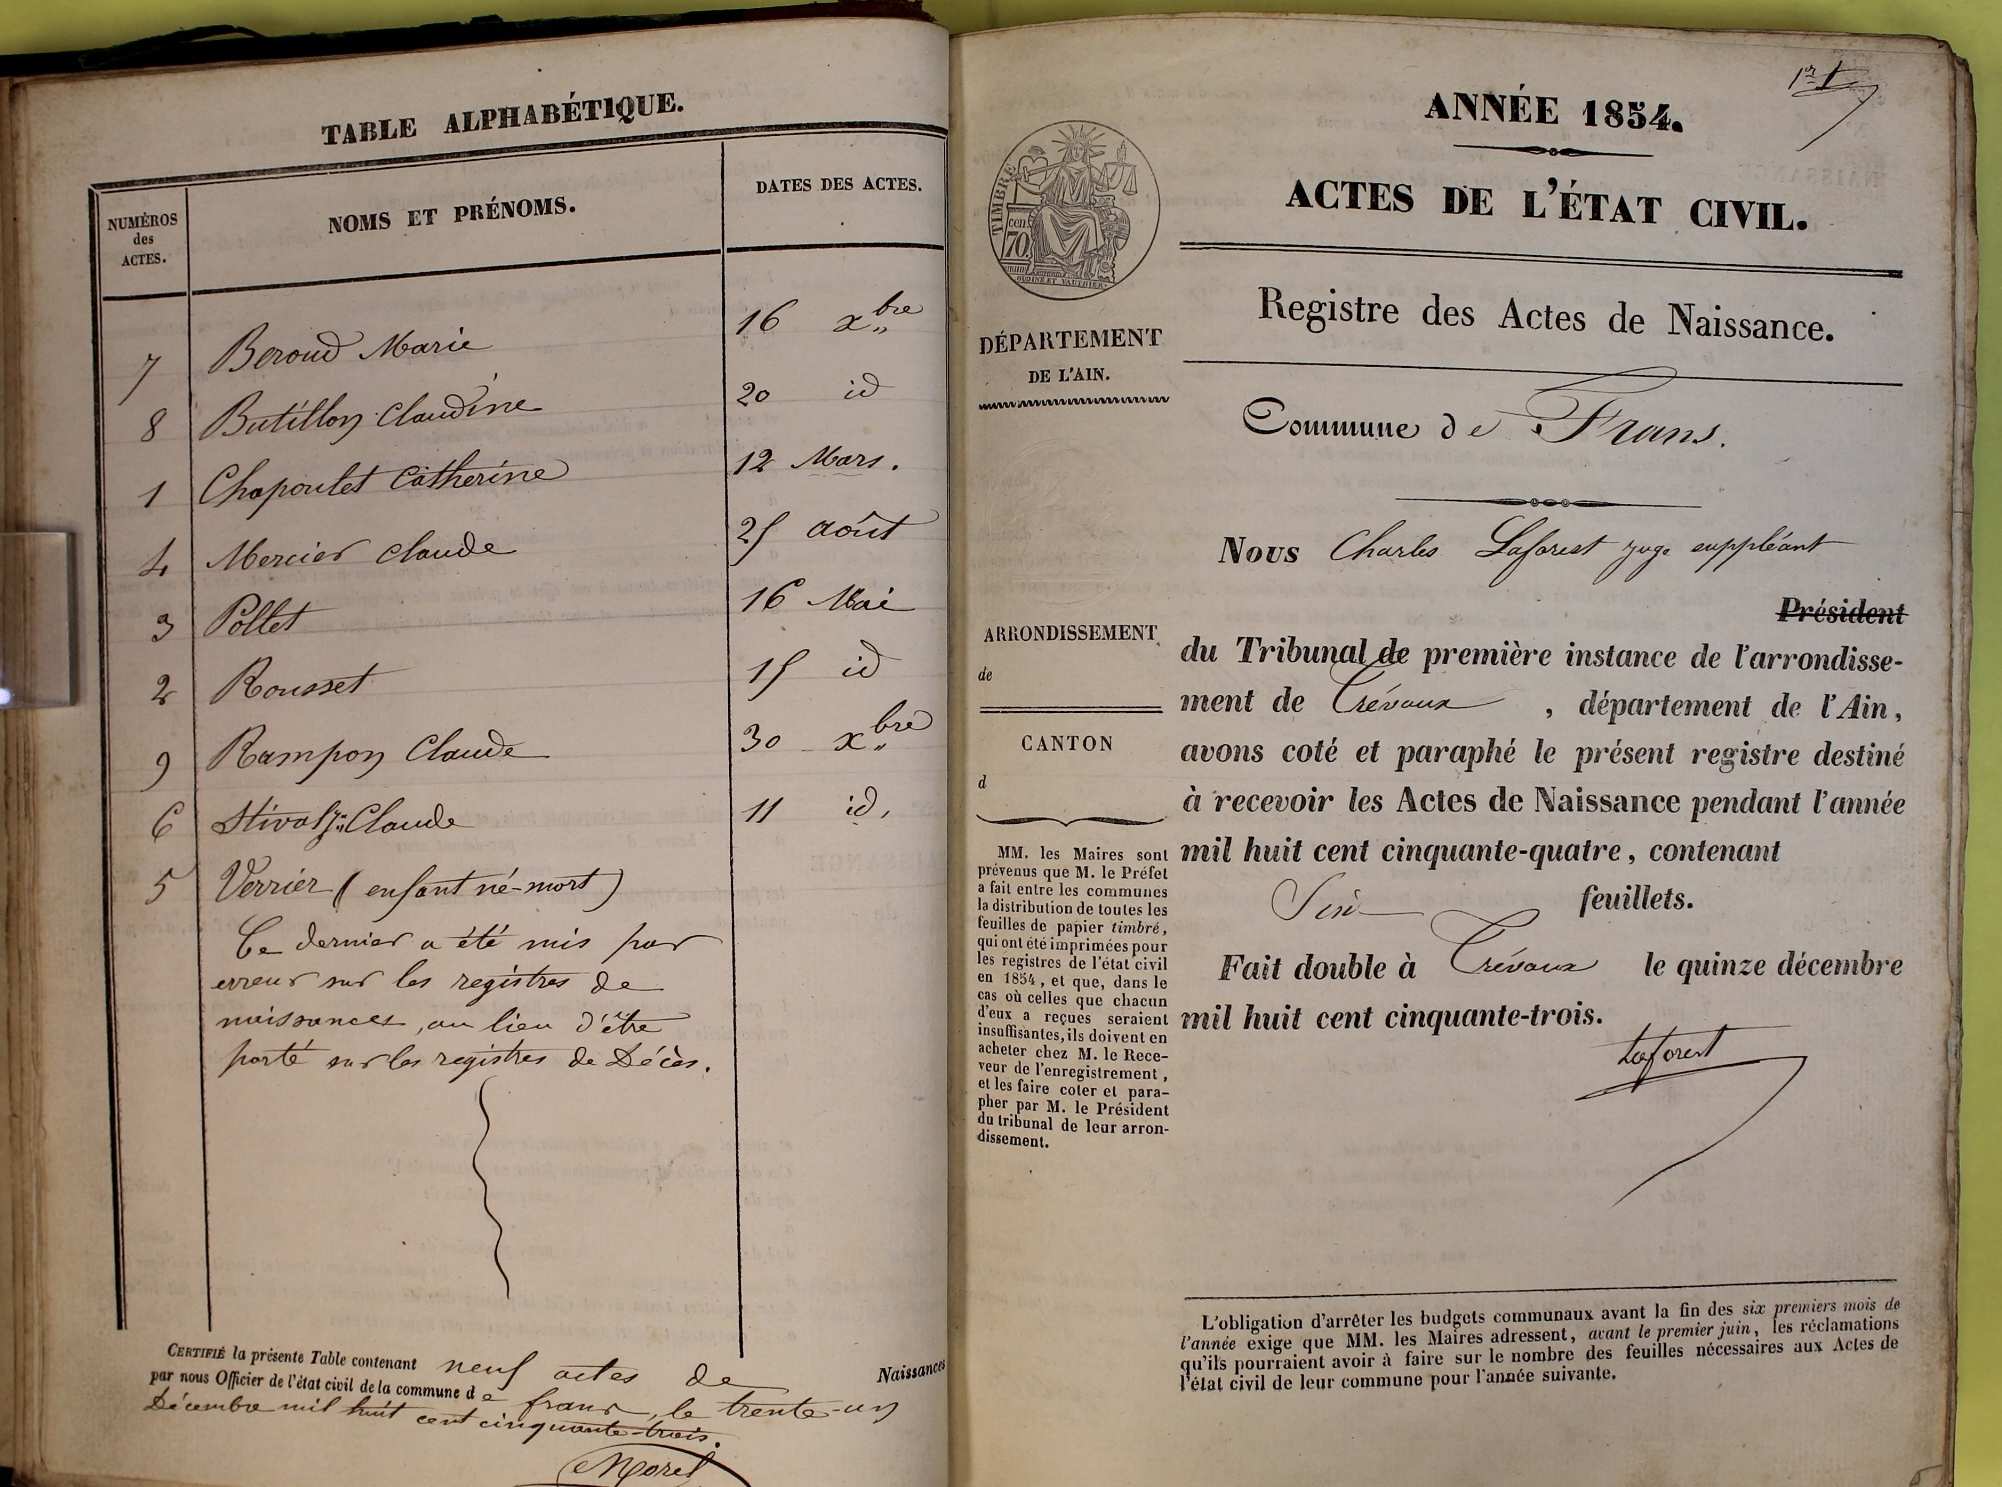 TABLE ALPHABÉTIQUE.
NUMÉROS
des
ACTES.
NOMS ET PRÉNOMS.
DATES DES ACTES.
7 Beroud Marie 16 xbre
8 Butillon Claudine 20 id
1 Chapoulet Catherine 12 Mars.
4 Mercier Claude 25 août
3 Pollet 16 Mai
2 Rousset 15 id
9 Rampon Claude 30 xbre
6 Claude 11 id.
5 Verrier (enfant né-mort)
Ce dernier a été mis par
erreur sur les registres de
naissances, au lieu d'être
porté sur les registres de Décès.
CERTIFIÉ la présente Table contenant neuf actes de Naissances
par nous Officier de l'état civil de la commune de frans, le trente-un
Décembre mil huit cent cinquante-trois.
Morel
1er
ANNÉE 1854.
ACTES DE L'ÉTAT CIVIL.
TIMBRE
70
cen
OUDINÉ ET VAUTHIER
Registre des Actes de Naissance.
DÉPARTEMENT
DE L'AIN.
Commune de Frans.
Nous Charles Laforest juge suppléant
Président
du Tribunal de première instance de l'arrondisse-
ment de Trévoux , département de l'Ain,
avons coté et paraphé le présent registre destiné
à recevoir les Actes de Naissance pendant l'année
mil huit cent cinquante-quatre, contenant
Six feuillets.
Fait double à Trévoux le quinze décembre
mil huit cent cinquante-trois.
Laforest
ARRONDISSEMENT
de
CANTON
d
MM. les Maires sont
prévenus que M. le Préfet
a fait entre les communes
la distribution de toutes les
feuilles de papier timbré,
qui ont été imprimées pour
les registres de l'état civil
en 1854, et que, dans le
cas où celles que chacun
d'eux a reçues seraient
insuffisantes, ils doivent en
acheter chez M. le Rece-
veur de l'enregistrement,
et les faire coter et para-
pher par M. le Président
du tribunal de leur arron-
dissement.
L'obligation d'arrêter les budgets communaux avant la fin des six premiers mois de
l'année exige que MM. les Maires adressent, avant le premier juin, les réclamations
qu'ils pourraient avoir à faire sur le nombre des feuilles nécessaires aux Actes de
l'état civil de leur commune pour l'année suivante.